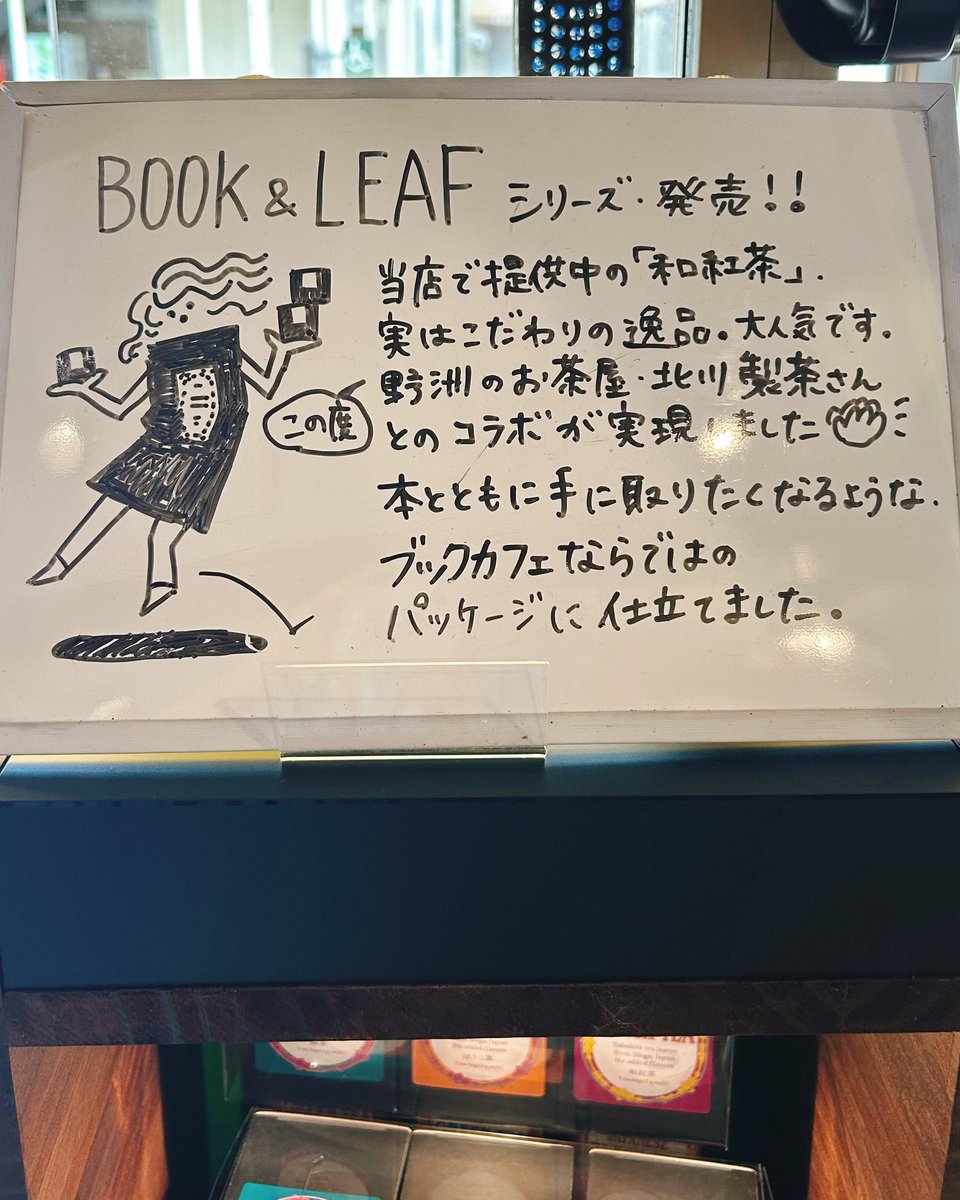 BOOK & LEAF シリーズ・発売!!
当店で提供中の「和紅茶」.
実はこだわりの逸品。大人気です.
野洲のお茶屋・北川製茶さん
この度
とのコラボが実現しました
本とともに手に取りたくなるような.
ブックカフェならではの
パッケージに仕立てました。